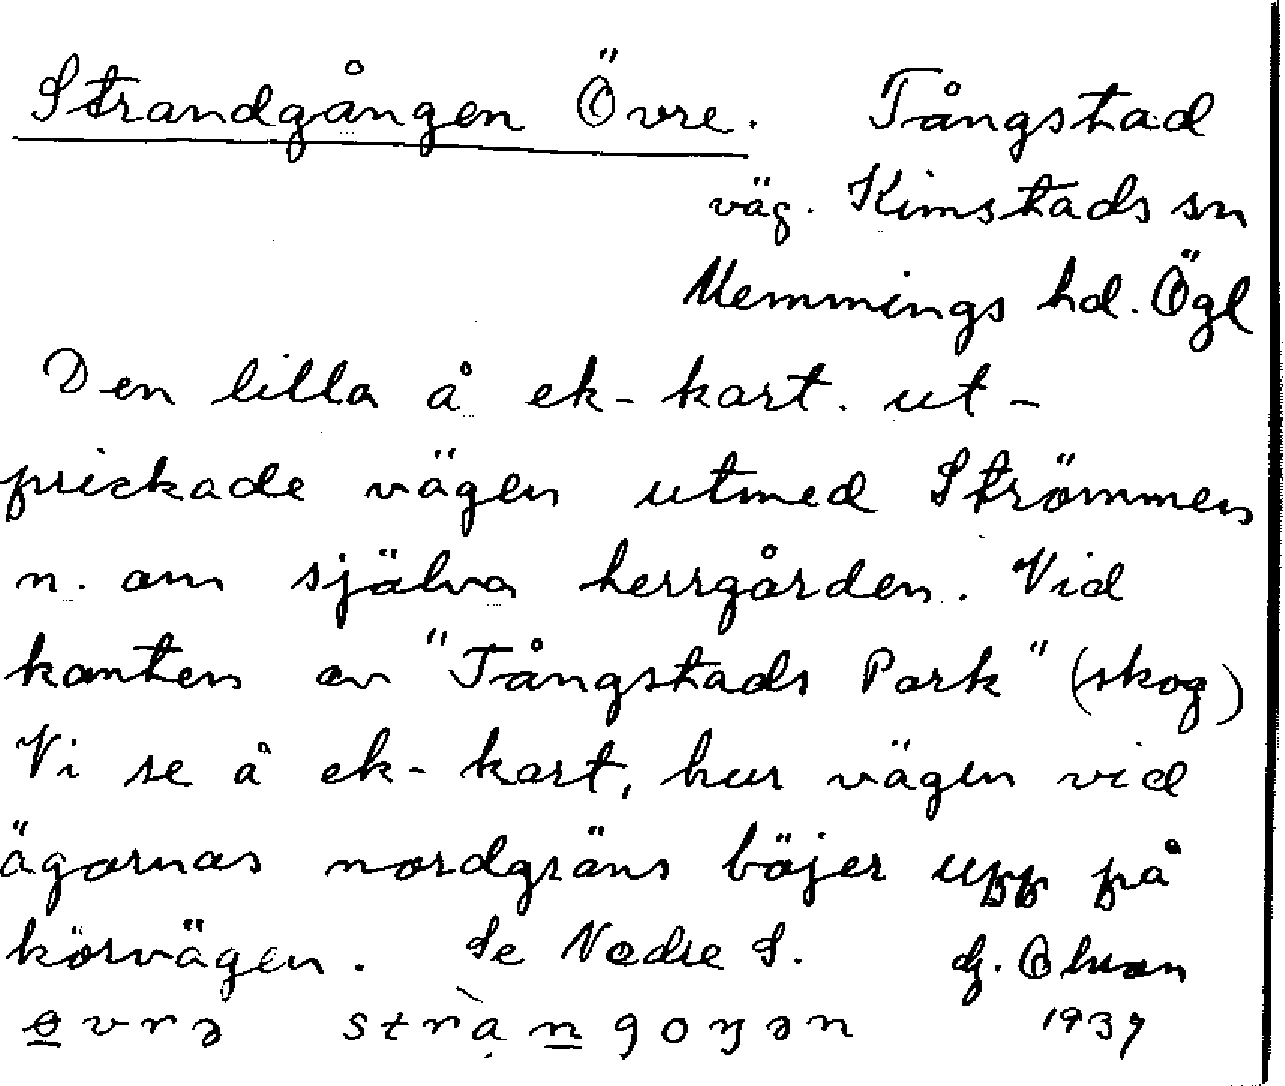 Strandgången Övre. Tångstad
väg. Kimstads sn
Memmings hd. Ögl
Den lilla å ek-kart. ut-
prickade vägen utmed Strömmen
n. om själva herrgården. Vid
kanten av "Tångstads Park" (skog)
Vi se å ek-kart, hur vägen vid
ägornas nordgräns böjer upp på
körvägen. Se Nedre S. G. Ohson
ɵvrə stràngoŋən 1937